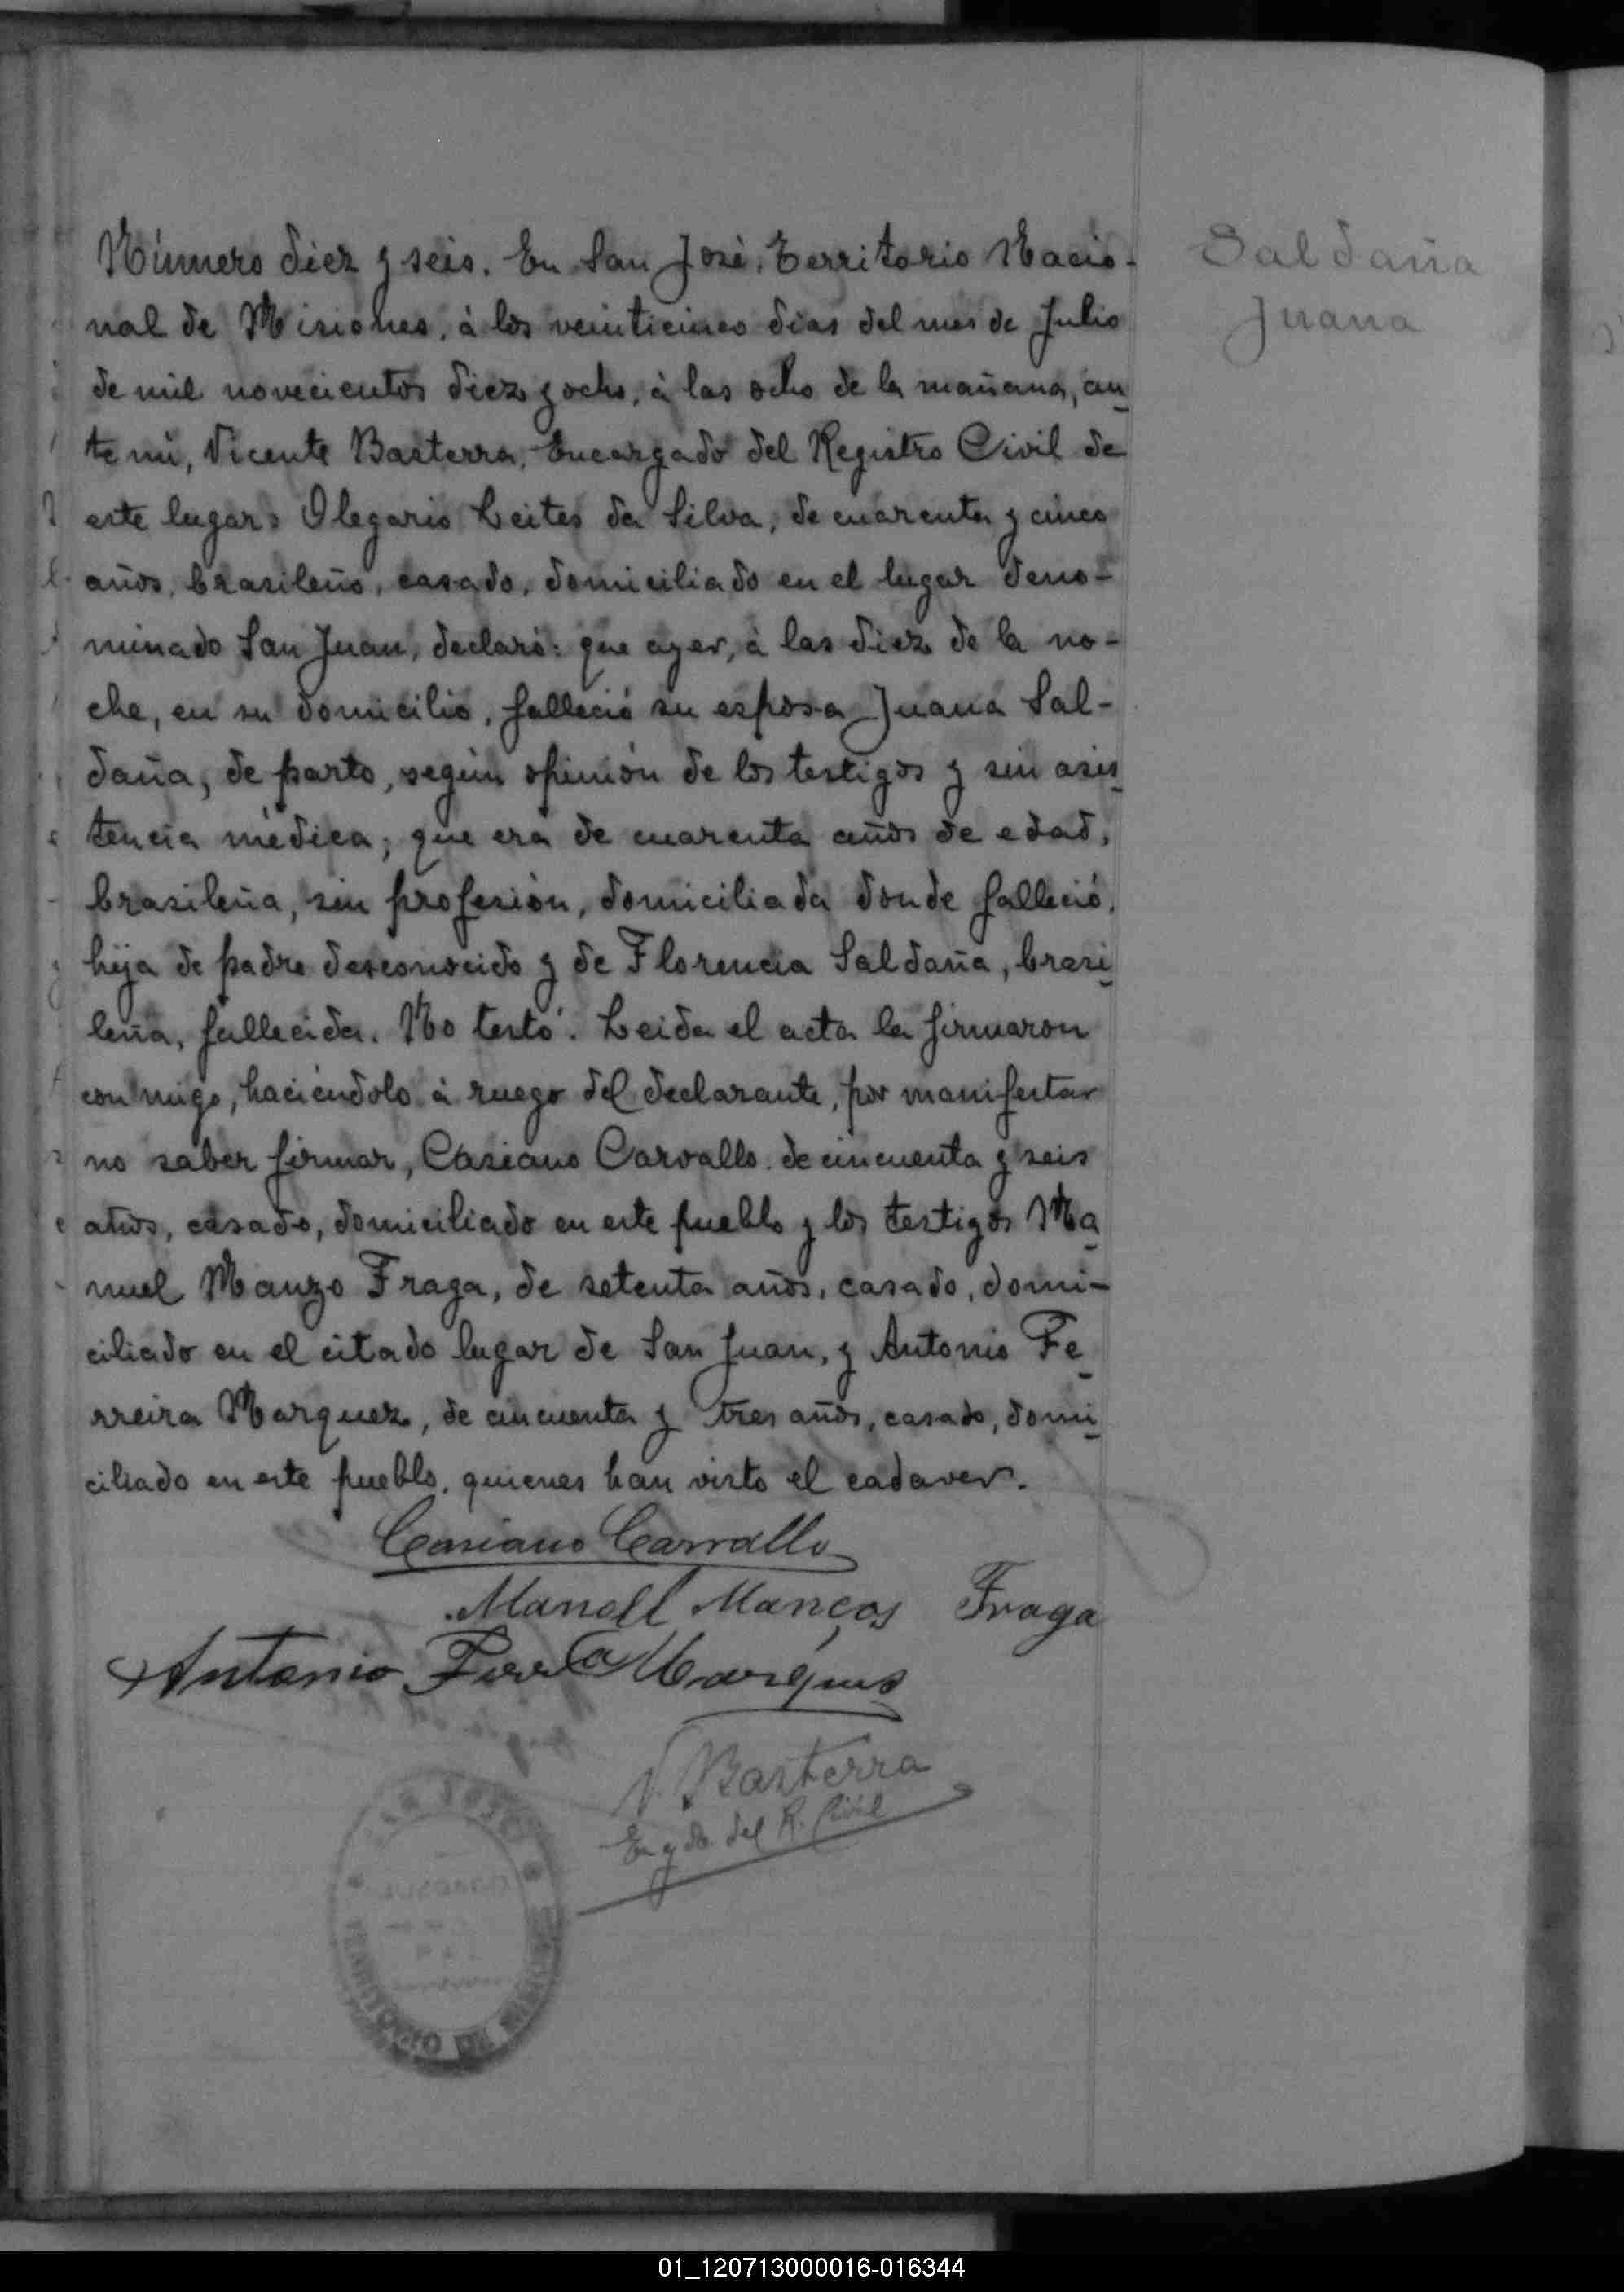 Saldaña
Juana
Número diez y seis. En San José, Territorio Nacio-
nal de Misiones, à los veinticinco dias del mes de Julio
de mil novecientos diez y ocho, à las ocho de la mañana, an
te mi, Vicente Basterra, Encargado del Registro Civil de
este lugar: Olegario Leites da Silva, de cuarenta y cinco
años, brasileño, casado, domiciliado en el lugar deno-
minado San Juan, declaró: que ayer, à las diez de la no-
che, en su domicilio, falleció su esposa Juana Sal-
daña, de parto, según opinión de los testigos y sin asis
tencia médica; que era de cuarenta años de edad,
brasileña, sin profesión, domiciliada donde falleció,
hija de padre desconocido y de Florencia Saldaña, brasi
leña, fallecida. No testó. Leida el acta la firmaron
conmigo, haciéndolo à ruego del declarante, por manifestar
no saber firmar, Casiano Carvallo de cincuenta y seis
años, casado, domiciliado en este pueblo y los testigos Ma
nuel Manzo Fraga, de setenta años, casado, domi-
ciliado en el citado lugar de San Juan, y Antonio Fe
rreira Marquez, de cincuenta y tres años, casado, domi
ciliado en este pueblo, quienes han visto el cadaver.
Casiano Carvallo
Manoel Manços Fraga
Antonio Ferra Marques
V. Basterra
Engdo. del R. Civil
SAN JOSÉ
TERRITORIO DE MISIONES
01_120713000016-016344